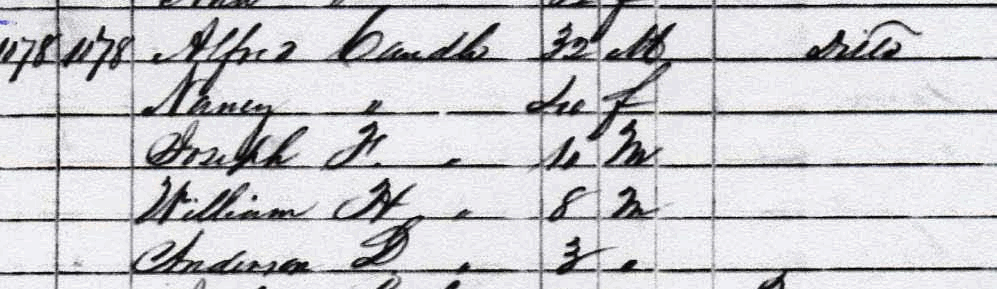 1178 1178 Alfred Caudle 32 M Ditto
Nancy " 40 f
Joseph F. " 10 M
William H " 8 M
Anderson D " 3 "